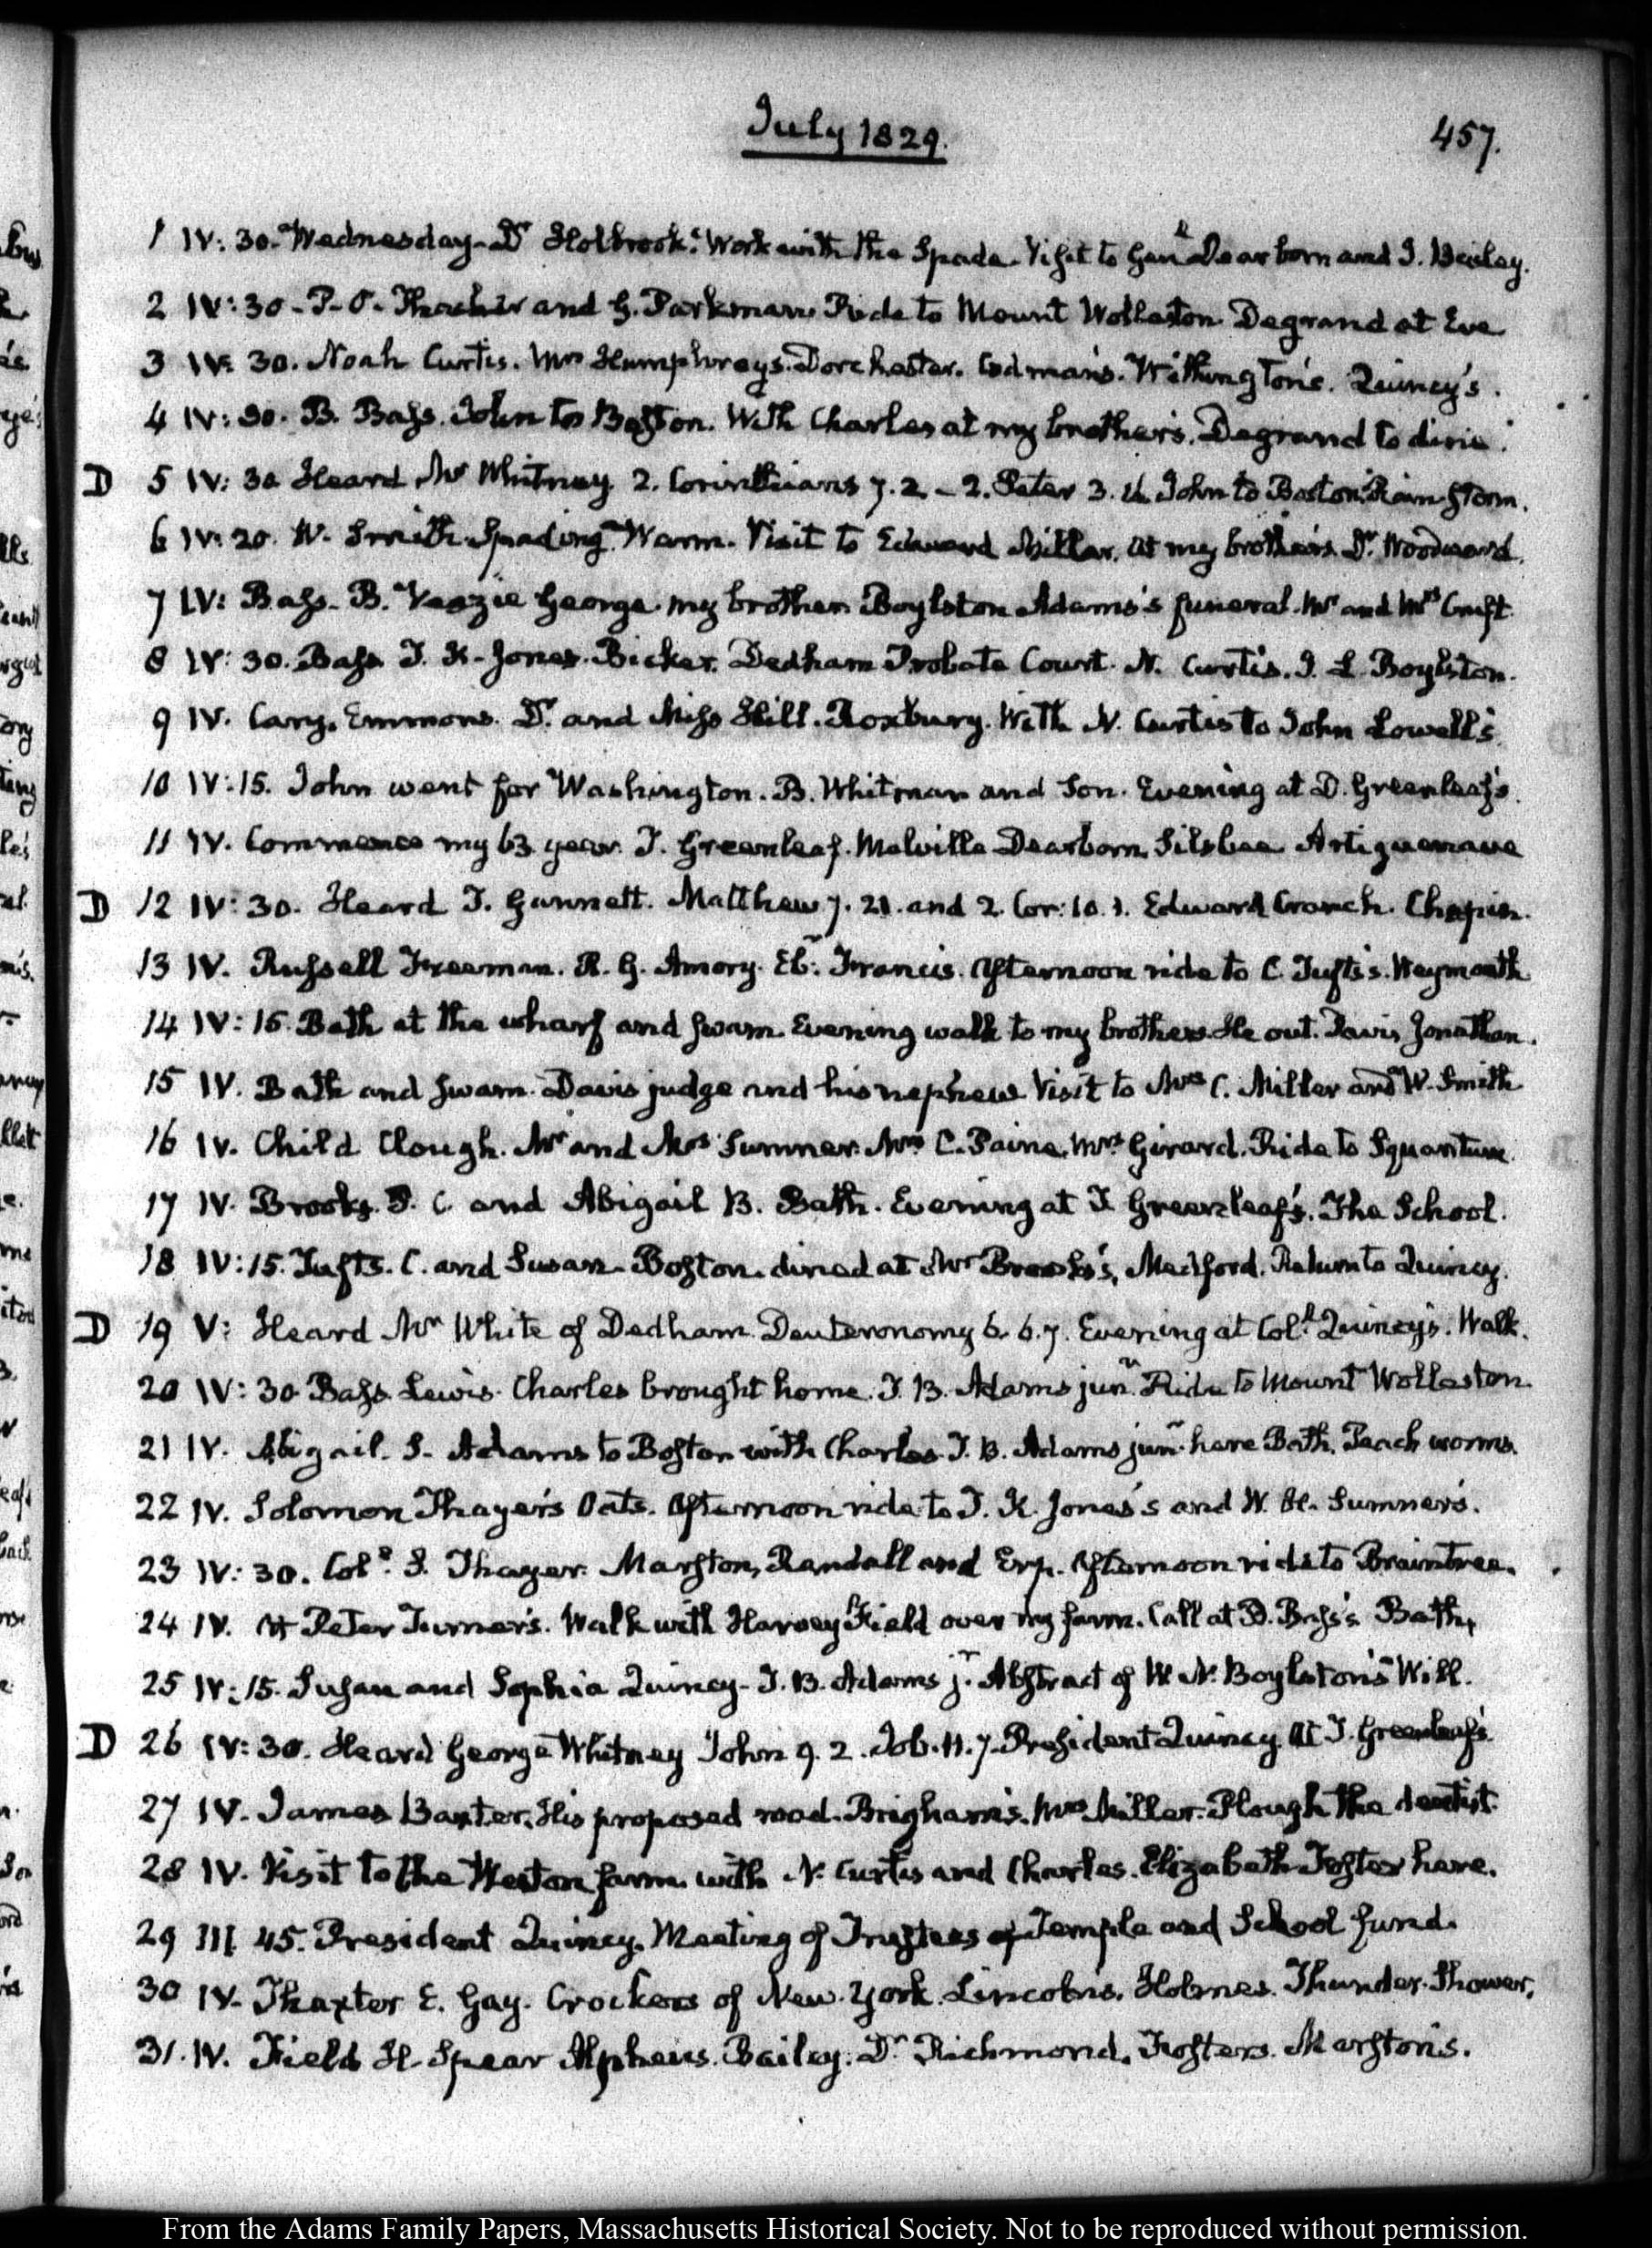 July 1829.
457.
1 IV: 30. Wednesday. Dr Holbrook. Work with the Spade. Visit to Genl Dearborn and J. Bailey.
2 IV: 30. P. O. Thacher and G. Parkman. Ride to Mount Wollaston. Degrand at Eve
3 IV: 30. Noah Curtis. Mrs Humphreys. Dorchester. Codman's. Withington's. Quincy's.
4 IV: 30. B. Bass. John to Boston. With Charles at my brother's. Degrand to dine.
D 5 IV: 30 Heard Mr Whitney 2. Corinthians 7. 2. – 2. Peter 3. John to Boston. Rain Storm.
6 IV: 20. W. Smith. Spading. Warm. Visit to Edward Miller. at my brother's. Dr Woodward.
7 IV: Bass. B. Veazie George. my brother. Boylston Adams's funeral. Mr and Mrs Cruft.
8 IV: 30. Bass. T. K. Jones. Bicker. Dedham Probate Court. N. Curtis. J. L. Boylston.
9 IV. Cary. Emmons. Dr and Miss Hill. Roxbury. With N. Curtis to John Lowell's.
10 IV: 15. John went for Washington. B. Whitman and Son. Evening at D. Greenleaf's.
11 IV. Commence my 63 year. T. Greenleaf. Melville Dearborn. Silsbee Artiguenave
D 12 IV: 30. Heard T. Gannett. Matthew 7. 21. and 2. Cor: 10. 1. Edward Cranch. Chapin.
13 IV. Russell Freeman. R. G. Amory. Eb: Francis. Afternoon ride to C. Tufts's. Weymouth
14 IV: 15. Bath at the wharf and swam. Evening walk to my brothers. He out. Davis Jonathan.
15 IV. Bath and swam. Davis judge and his nephew. Visit to Mrs C. Miller and W. Smith
16 IV. Child Clough. Mr and Mrs Sumner. Mrs C. Paine. Mrs Girard. Ride to Squantum.
17 IV. Brooks. P. C. and Abigail B. Bath. Evening at T. Greenleaf's. The School.
18 IV: 15. Tufts. C. and Susan. Boston. dined at Mr Brooks's, Medford. Return to Quincy.
D 19 V: Heard Mr White of Dedham. Deuteronomy 6. 6. 7. Evening at Coll Quincy's. Walk.
20 IV: 30 Bass. Lewis. Charles brought home. T. B. Adams junr. Ride to Mount Wollaston.
21 IV. Abigail. S. Adams to Boston with Charles. T. B. Adams junr here. Bath. Peach worms.
22 IV. Solomon Thayer's Oats. Afternoon ride to T. K. Jones's and W. H. Sumner's.
23 IV: 30. Coll S. Thayer. Marston, Randall and Afternoon ride to Braintree.
24 IV. At Peter Turner's. Walk with Harvey Field over my farm. Call at D. Bass's. Bath,
25 IV: 15. Susan and Sophia Quincy. T. B. Adams jr. Abstract of W. N. Boylston's Will.
D 26 IV: 30. Heard George Whitney John 9. 2. Job. 11. 7. President Quincy. At T. Greenleaf's.
27 IV. James Baxter. His proposed road. Brigham's. Mrs Miller. Plough the dentist.
28 IV. Visit to the Weston farm. with N. Curtis and Charles. Elizabeth Foster here.
29 III 45. President Quincy. Meeting of Trustees of Temple and School fund.
30 IV. Thaxter E. Gay. Crockers of New-York. Lincolns. Holmes. Thunder Shower.
31. IV. Field H. Spear Alpheus. Bailey. Dr Richmond. Fosters. Marston's.
From the Adams Family Papers, Massachusetts Historical Society. Not to be reproduced without permission.